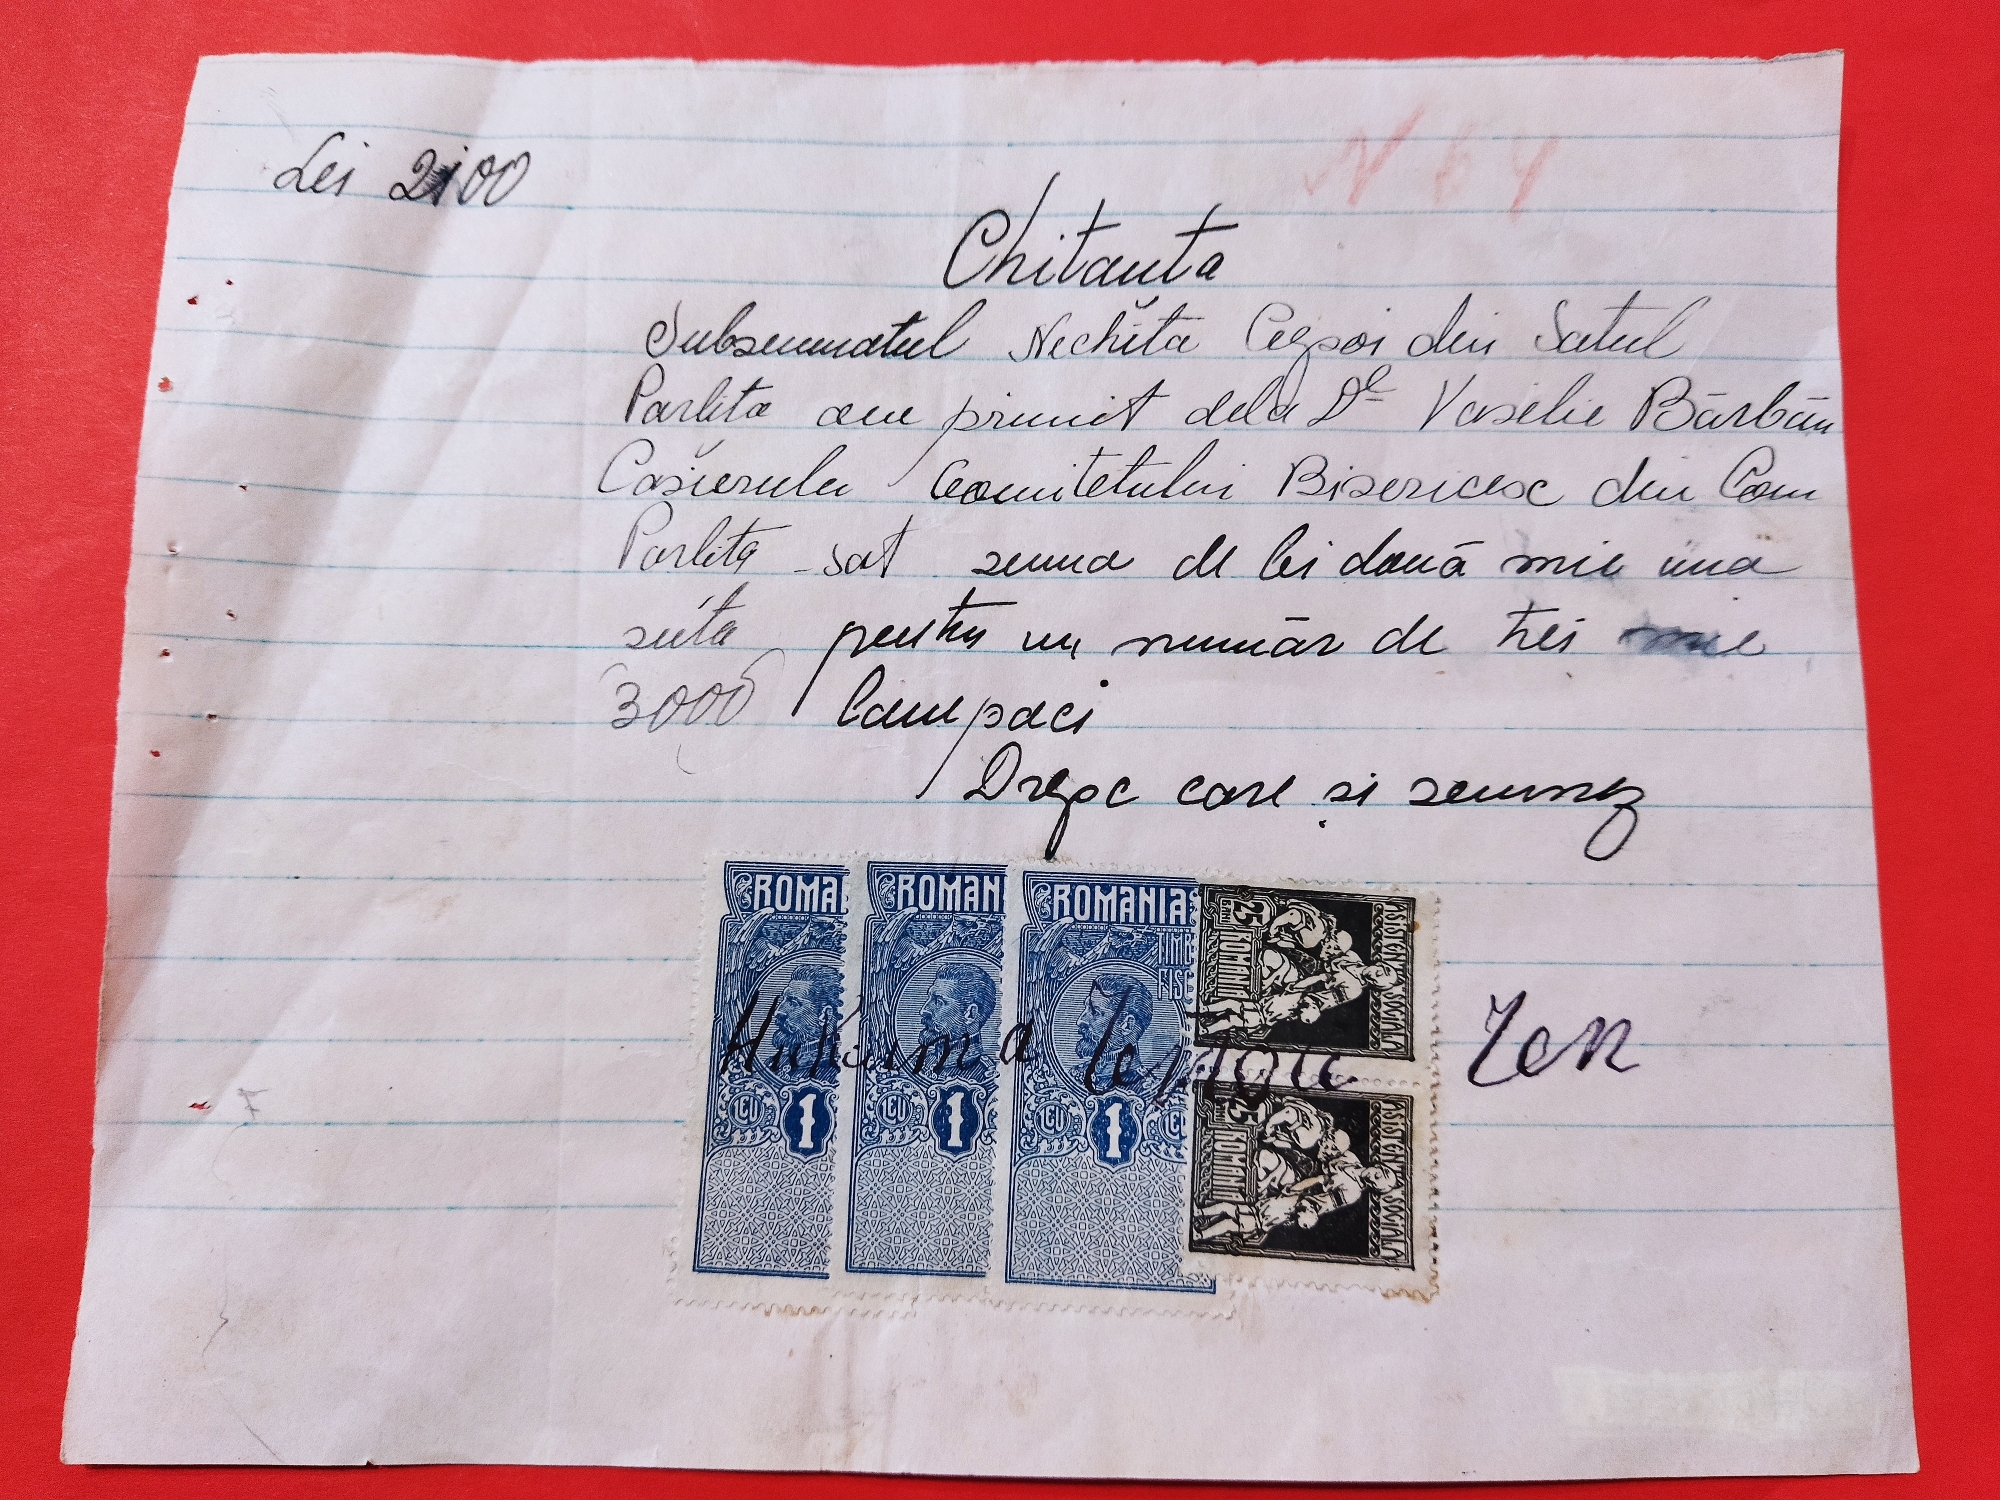 Lei 2100
N 64
Chitanta
Subsemnatul Nechita Cepoi din Satul
Parlita am primit dela Dl Vasilie Bărbăn
Casierulu Comitetului Bisericesc din Com
Parlita - sat suma de lei două mie una
suta pentru un număr de trei mie
3000 Campaci
Drepc care si semnez
ROMA ROMAN ROMANIA
TIMB
FISC
25 BANI ROMANIA ASISTENTA SOCIALA
LEU 1 LEU 1 LEU 1 LE
25 BANI ROMANIA ASISTENTA SOCIALA